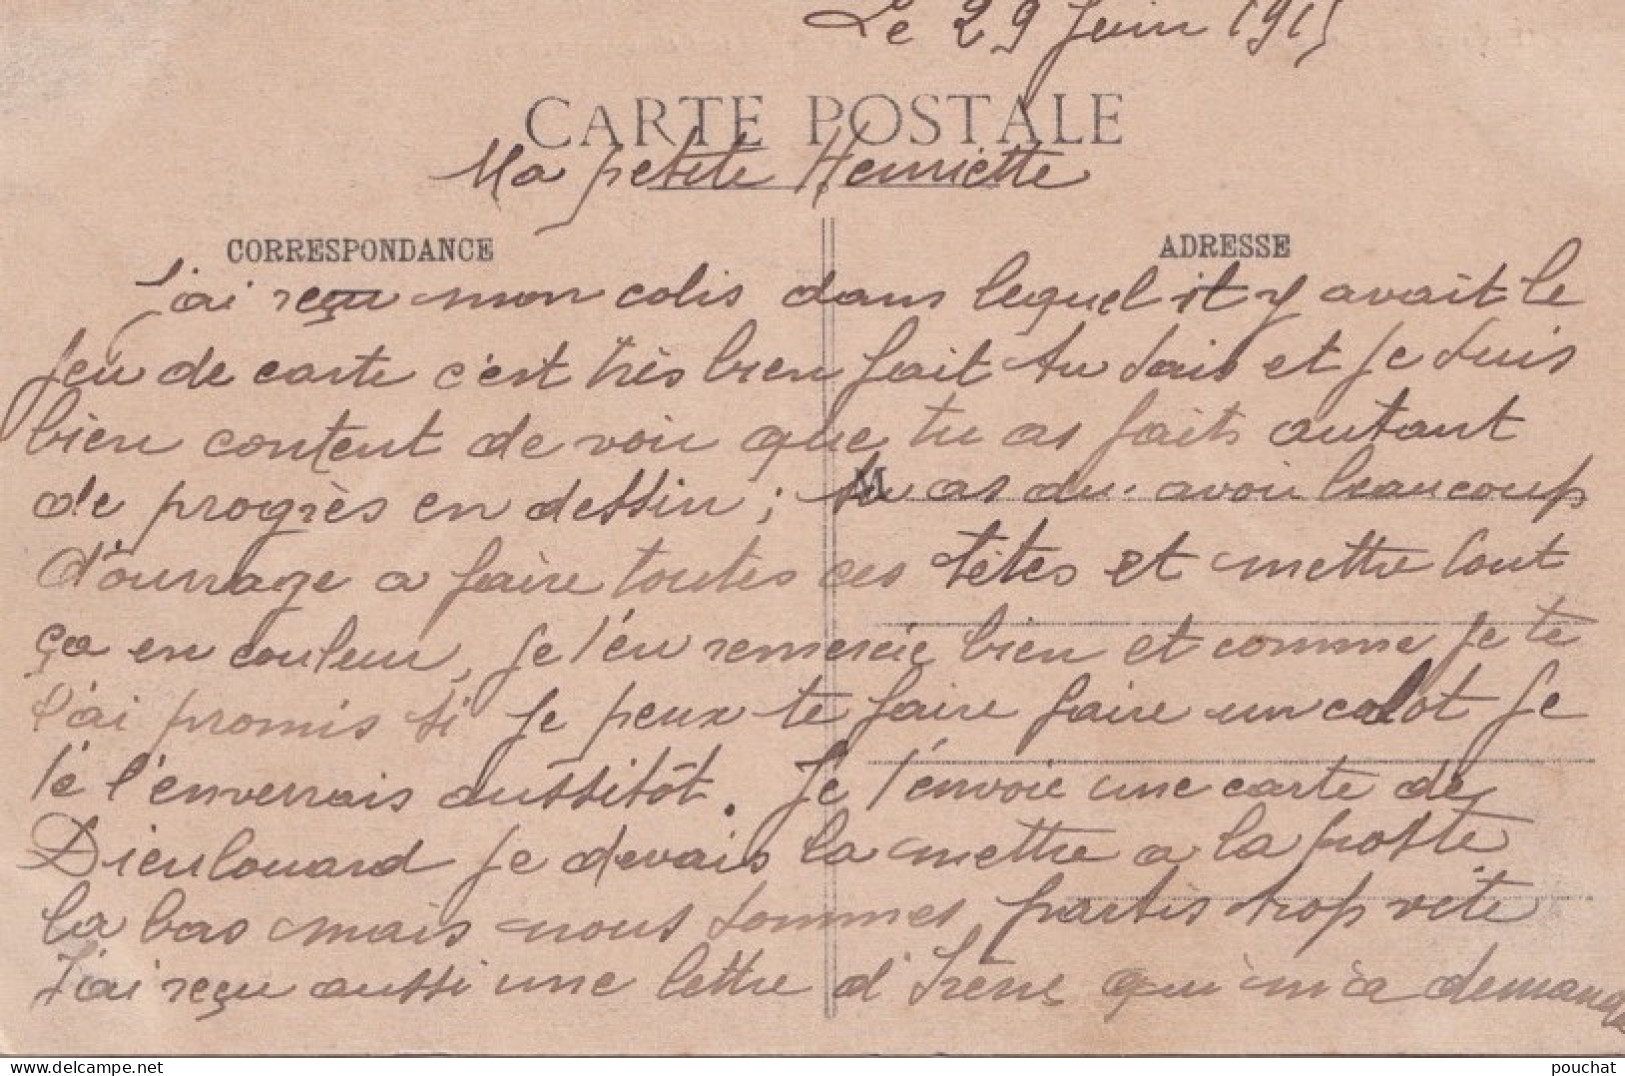 Le 29 Juin 1915
CARTE POSTALE
Ma petite Henriette
CORRESPONDANCE ADRESSE
J'ai reçu mon colis dans lequel il y avait le
jeu de carte c'est très bien fait tu sais et je suis
bien content de voir que tu as faits autant
M
de progrès en dessin ; tu as du avoir beaucoup
d'ouvrage a faire toutes ces têtes et mettre tout
ça en couleur, je t'en remercie bien et comme je te
l'ai promis si je peux te faire faire un calot je
te l'enverrais aussitôt. Je t'envoie une carte de
Dieulouard je devais la mettre a la poste
la bas mais nous sommes partis trop vite
J'ai reçu aussi une lettre d'Irène qui m'a demandé
delcampe.net
pouchat